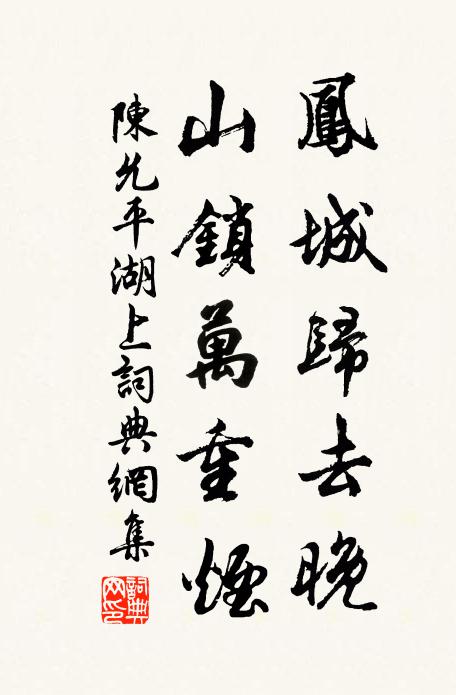 鳳城歸去晚
山鎖萬重煙
陳允平湖上詞典網集
詞典網印